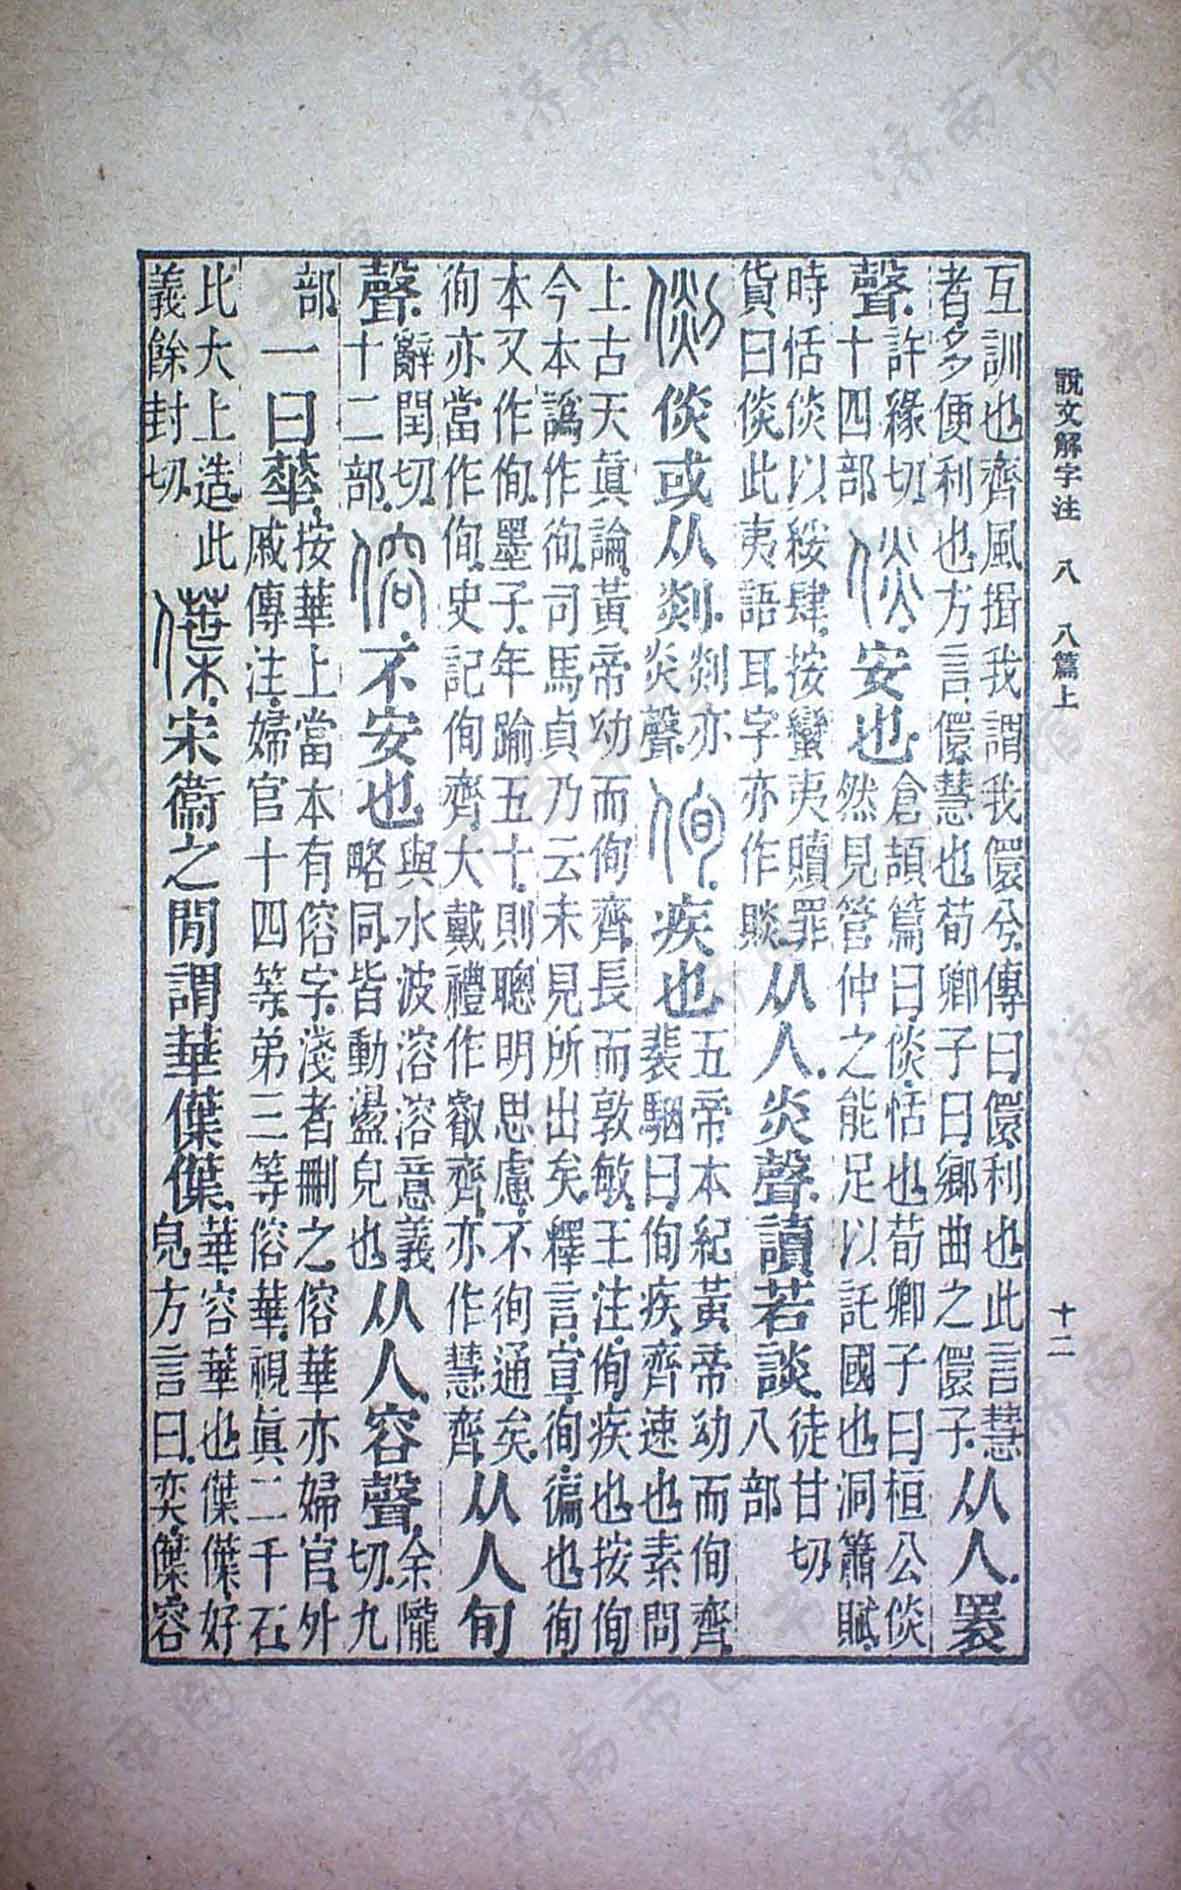 說文解字注 八 八篇上 十二
互訓也齊風揖我謂我儇兮傳曰儇利也此言慧
者多便利也方言儇慧也荀卿子曰鄉曲之儇子
从人瞏
聲
許緣切
十四部
倓安也
倉頡篇曰倓恬也荀卿子曰桓公倓
然見管仲之能足以託國也洞簫賦
時恬倓以綏肆按蠻夷贖罪
貨曰倓此夷語耳字亦作賧
从人炎聲讀若談
徒甘切
八部
倓或从剡
剡亦
炎聲
侚疾也
五帝本紀黃帝幼而侚齊
裴駰曰侚疾齊速也素問
上古天眞論黃帝幼而侚齊長而敦敏王注侚疾也按侚
今本譌作徇司馬貞乃云未見所出矣釋言宣徇徧也徇
本又作侚墨子年踰五十則聰明思慮不徇通矣
徇亦當作侚史記侚齊大戴禮作叡齊亦作慧齊
从人旬
聲
辭閏切
十二部
傛不安也
與水波溶溶意義
略同皆動盪皃也
从人容聲
余隴
切九
部
一曰華
按華上當本有傛字淺者刪之傛華亦婦官外
戚傳注婦官十四等弟三等傛華視眞二千石
比大上造此
義餘封切
僷宋衞之閒謂華僷僷
華容華也僷僷好
皃方言曰奕僷容